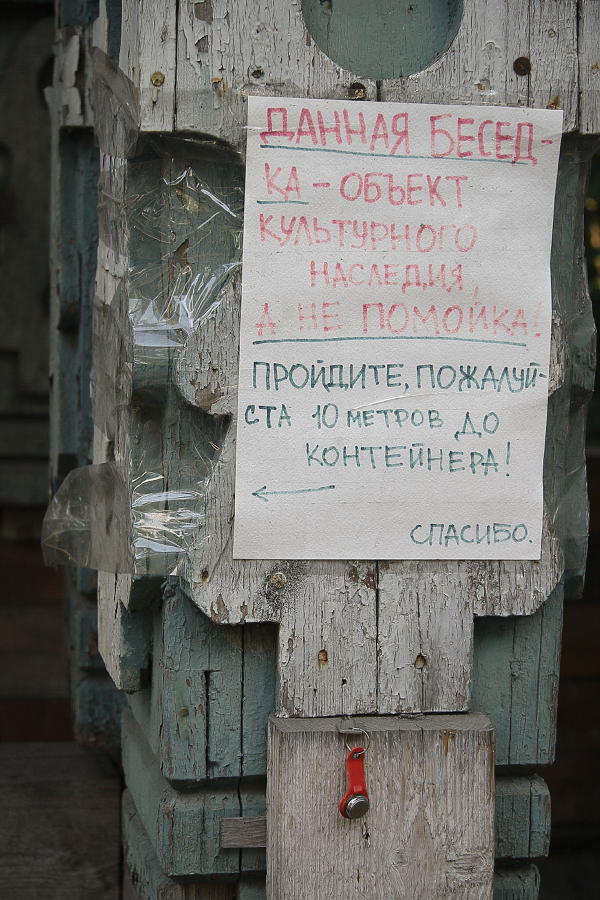 ДАННАЯ БЕСЕД-
КА - ОБЪЕКТ
КУЛЬТУРНОГО
НАСЛЕДИЯ,
А НЕ ПОМОЙКА!
ПРОЙДИТЕ, ПОЖАЛУЙ-
СТА 10 МЕТРОВ ДО
КОНТЕЙНЕРА!
СПАСИБО.